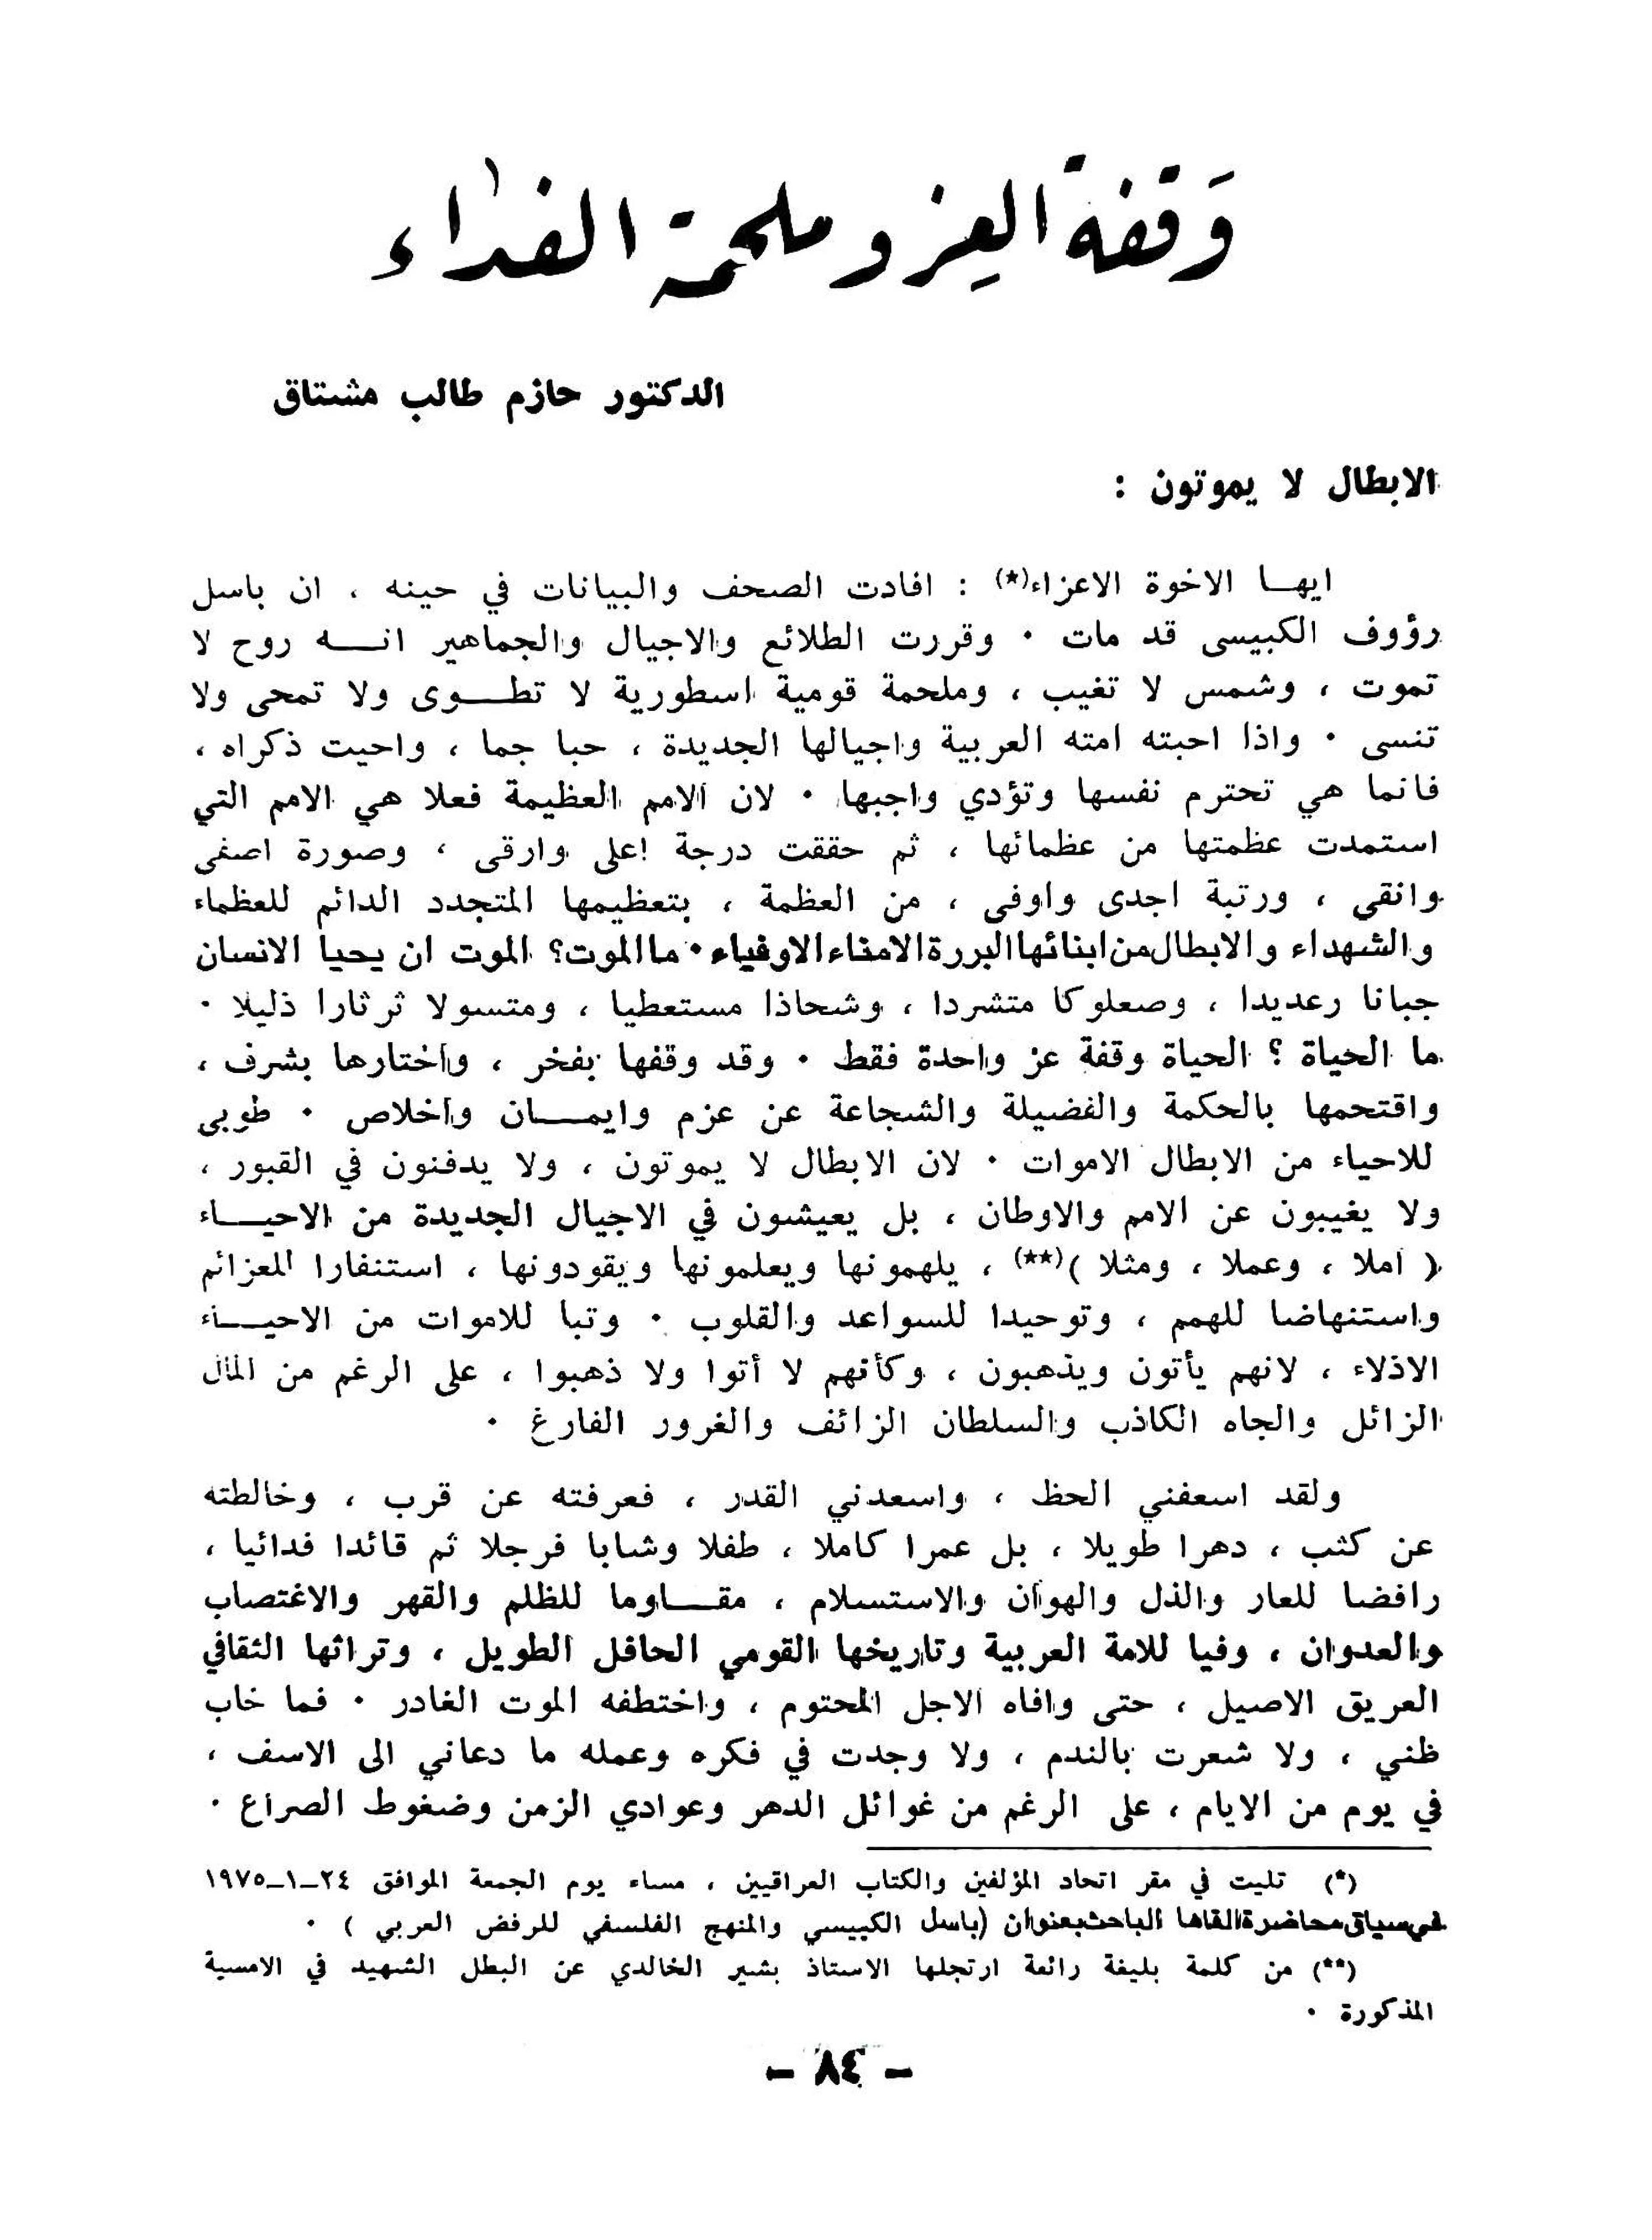 وَقفة العِز و ملحمة الفداء
الدكتور حازم طالب مشتاق
الابطال لا يموتون :
ايهـا الاخوة الاعزاء(*) : افادت الصحف والبيانات في حينه ، ان باسل
رؤوف الكبيسى قد مات ٠ وقررت الطلائع والاجيال والجماهير انـــه روح لا
تموت ، وشمس لا تغيب ، وملحمة قومية اسطورية لا تطـــوى ولا تمحى ولا
تنسى ٠ واذا احبته امته العربية واجيالها الجديدة ، حبا جما ، واحيت ذكراه ،
فانما هي تحترم نفسها وتؤدي واجبها ٠ لان الامم العظيمة فعلا هي الامم التي
استمدت عظمتها من عظمائها ، ثم حققت درجة اعلى وارقى ، وصورة اصفى
وانقى ، ورتبة اجدى واوفى ، من العظمة ، بتعظيمها المتجدد الدائم للعظماء
والشهداء والابطال من ابنائها البررة الامناء الاوفياء ٠ ما الموت؟ الموت ان يحيا الانسان
جبانا رعديدا ، وصعلوكا متشردا ، وشحاذا مستعطيا ، ومتسولا ثرثارا ذليلا ٠
ما الحياة ؟ الحياة وقفة عز واحدة فقط ٠ وقد وقفها بفخر ، واختارها بشرف ،
واقتحمها بالحكمة والفضيلة والشجاعة عن عزم وايمـــان واخلاص ٠ طوبى
للاحياء من الابطال الاموات ٠ لان الابطال لا يموتون ، ولا يدفنون في القبور ،
ولا يغيبون عن الامم والاوطان ، بل يعيشون في الاجيال الجديدة من الاحيـــاء
( املا ، وعملا ، ومثلا )(**) ، يلهمونها ويعلمونها ويقودونها ، استنفارا للعزائم
واستنهاضا للهمم ، وتوحيدا للسواعد والقلوب ٠ وتبا للاموات من الاحيـــاء
الاذلاء ، لانهم يأتون ويذهبون ، وكأنهم لا أتوا ولا ذهبوا ، على الرغم من المال
الزائل والجاه الكاذب والسلطان الزائف والغرور الفارغ ٠
ولقد اسعفني الحظ ، واسعدني القدر ، فعرفته عن قرب ، وخالطته
عن كثب ، دهرا طويلا ، بل عمرا كاملا ، طفلا وشابا فرجلا ثم قائدا فدائيا ،
رافضا للعار والذل والهوان والاستسلام ، مقـــاوما للظلم والقهر والاغتصاب
والعدوان ، وفيا للامة العربية وتاريخها القومي الحافل الطويل ، وتراثها الثقافي
العريق الاصيل ، حتى وافاه الاجل المحتوم ، واختطفه الموت الغادر ٠ فما خاب
ظني ، ولا شعرت بالندم ، ولا وجدت في فكره وعمله ما دعاني الى الاسف ،
في يوم من الايام ، على الرغم من غوائل الدهر وعوادي الزمن وضغوط الصراع ٠
(*) تليت في مقر اتحاد المؤلفين والكتاب العراقيين ، مساء يوم الجمعة الموافق ٢٤_١_١٩٧٥
في سياق محاضرة القاها الباحث بعنوان (باسل الكبيسي والمنهج الفلسفي للرفض العربي ) ٠
(**) من كلمة بليغة رائعة ارتجلها الاستاذ بشير الخالدي عن البطل الشهيد في الامسية
المذكورة ٠
- ٨٤ -